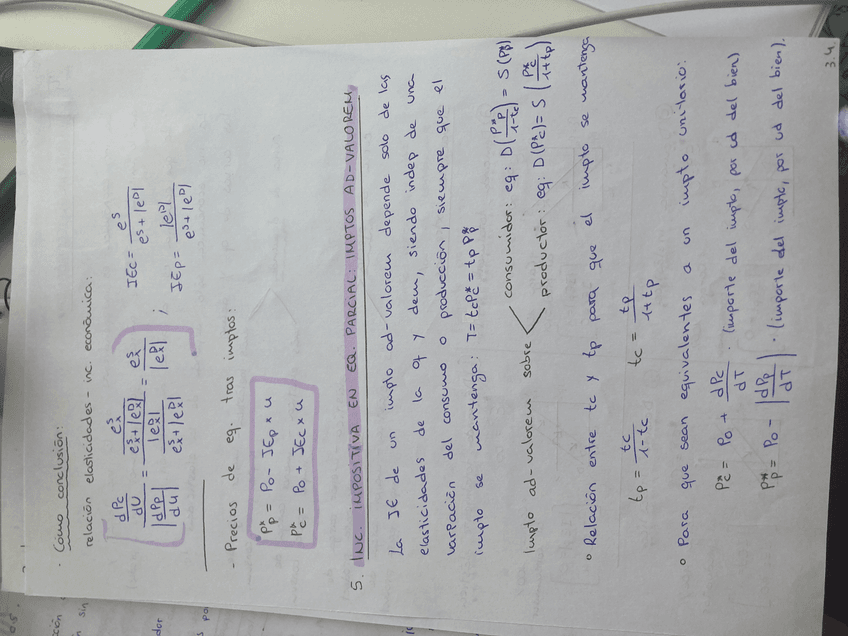 · Cómo conclusión:
relación elasticidades - inc. económica:
dPc/dU / |dPp/dU| = (e^s_x / (e^s_x + |e^D_x|)) / (|e^D_x| / (e^s_x + |e^D_x|)) = e^s_x / |e^D_x| ; IEc = e^s / (e^s + |e^D|)
IEp = |e^D| / (e^s + |e^D|)
- Precios de eq. tras imptos:
P*p = P0 - IEp x u
P*c = P0 + IEc x u
5. INC. IMPOSITIVA EN EQ. PARCIAL: IMPTOS AD-VALOREM
La IE de un impto ad-valorem depende solo de las
elasticidades de la of y dem, siendo indep de una
varpación del consumo o producción, siempre que el
impto se mantenga: T = tcP*c = tpP*p
Impto ad-valorem sobre
consumidor: eq: D(P*p / 1-tc) = S(P*p)
productor: eq: D(P*c) = S(P*c / 1+tp)
• Relación entre tc y tp para que el impto se mantenga
tp = tc / 1-tc   tc = tp / 1+tp
• Para que sean equivalentes a un impto unitario:
P*c = P0 + dPc/dT · (importe del impto, por ud del bien)
P*p = P0 - |dPp/dT| · (importe del impto, por ud del bien).
3.4